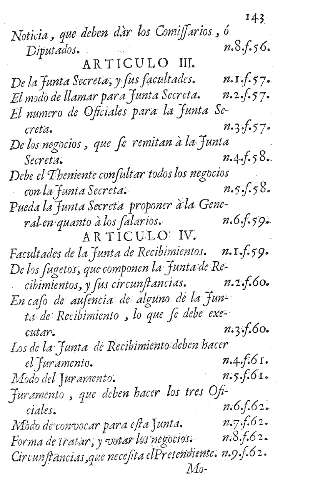 143
Noticia, que deben dàr los Comiſſarios, ó
Diputados. n.8.f.56.
ARTICULO III.
De la Junta Secreta, y ſus facultades. n.1.f.57.
El modo de llamar para Junta Secreta. n.2.f.57.
El numero de Oficiales para la Junta Se-
creta. n.3.f.57.
De los negocios, que ſe remitan à la Junta
Secreta. n.4.f.58.
Debe el Theniente conſultar todos los negocios
con la Junta Secreta. n.5.f.58.
Pueda la Junta Secreta proponer à la Gene-
ral en quanto à los ſalarios. n.6.f.59.
ARTICULO IV.
Facultades de la Junta de Recibimientos. n.1.f.59.
De los ſugetos, que componen la Junta de Re-
cibimientos, y ſus circunſtancias. n.2.f.60.
En caſo de auſencia de alguno de la Jun-
ta de Recibimiento, lo que ſe debe exe-
cutar. n.3.f.60.
Los de la Junta de Recibimiento deben hacer
el Juramento. n.4.f.61.
Modo del Juramento. n.5.f.61.
Juramento, que deben hacer los tres Ofi-
ciales. n.6.f.62.
Modo de convocar para eſta Junta. n.7.f.62.
Forma de tratar, y votar los negocios. n.8.f.62.
Circunſtancias, que neceſita el Pretendiente. n.9.f.62.
Mo-